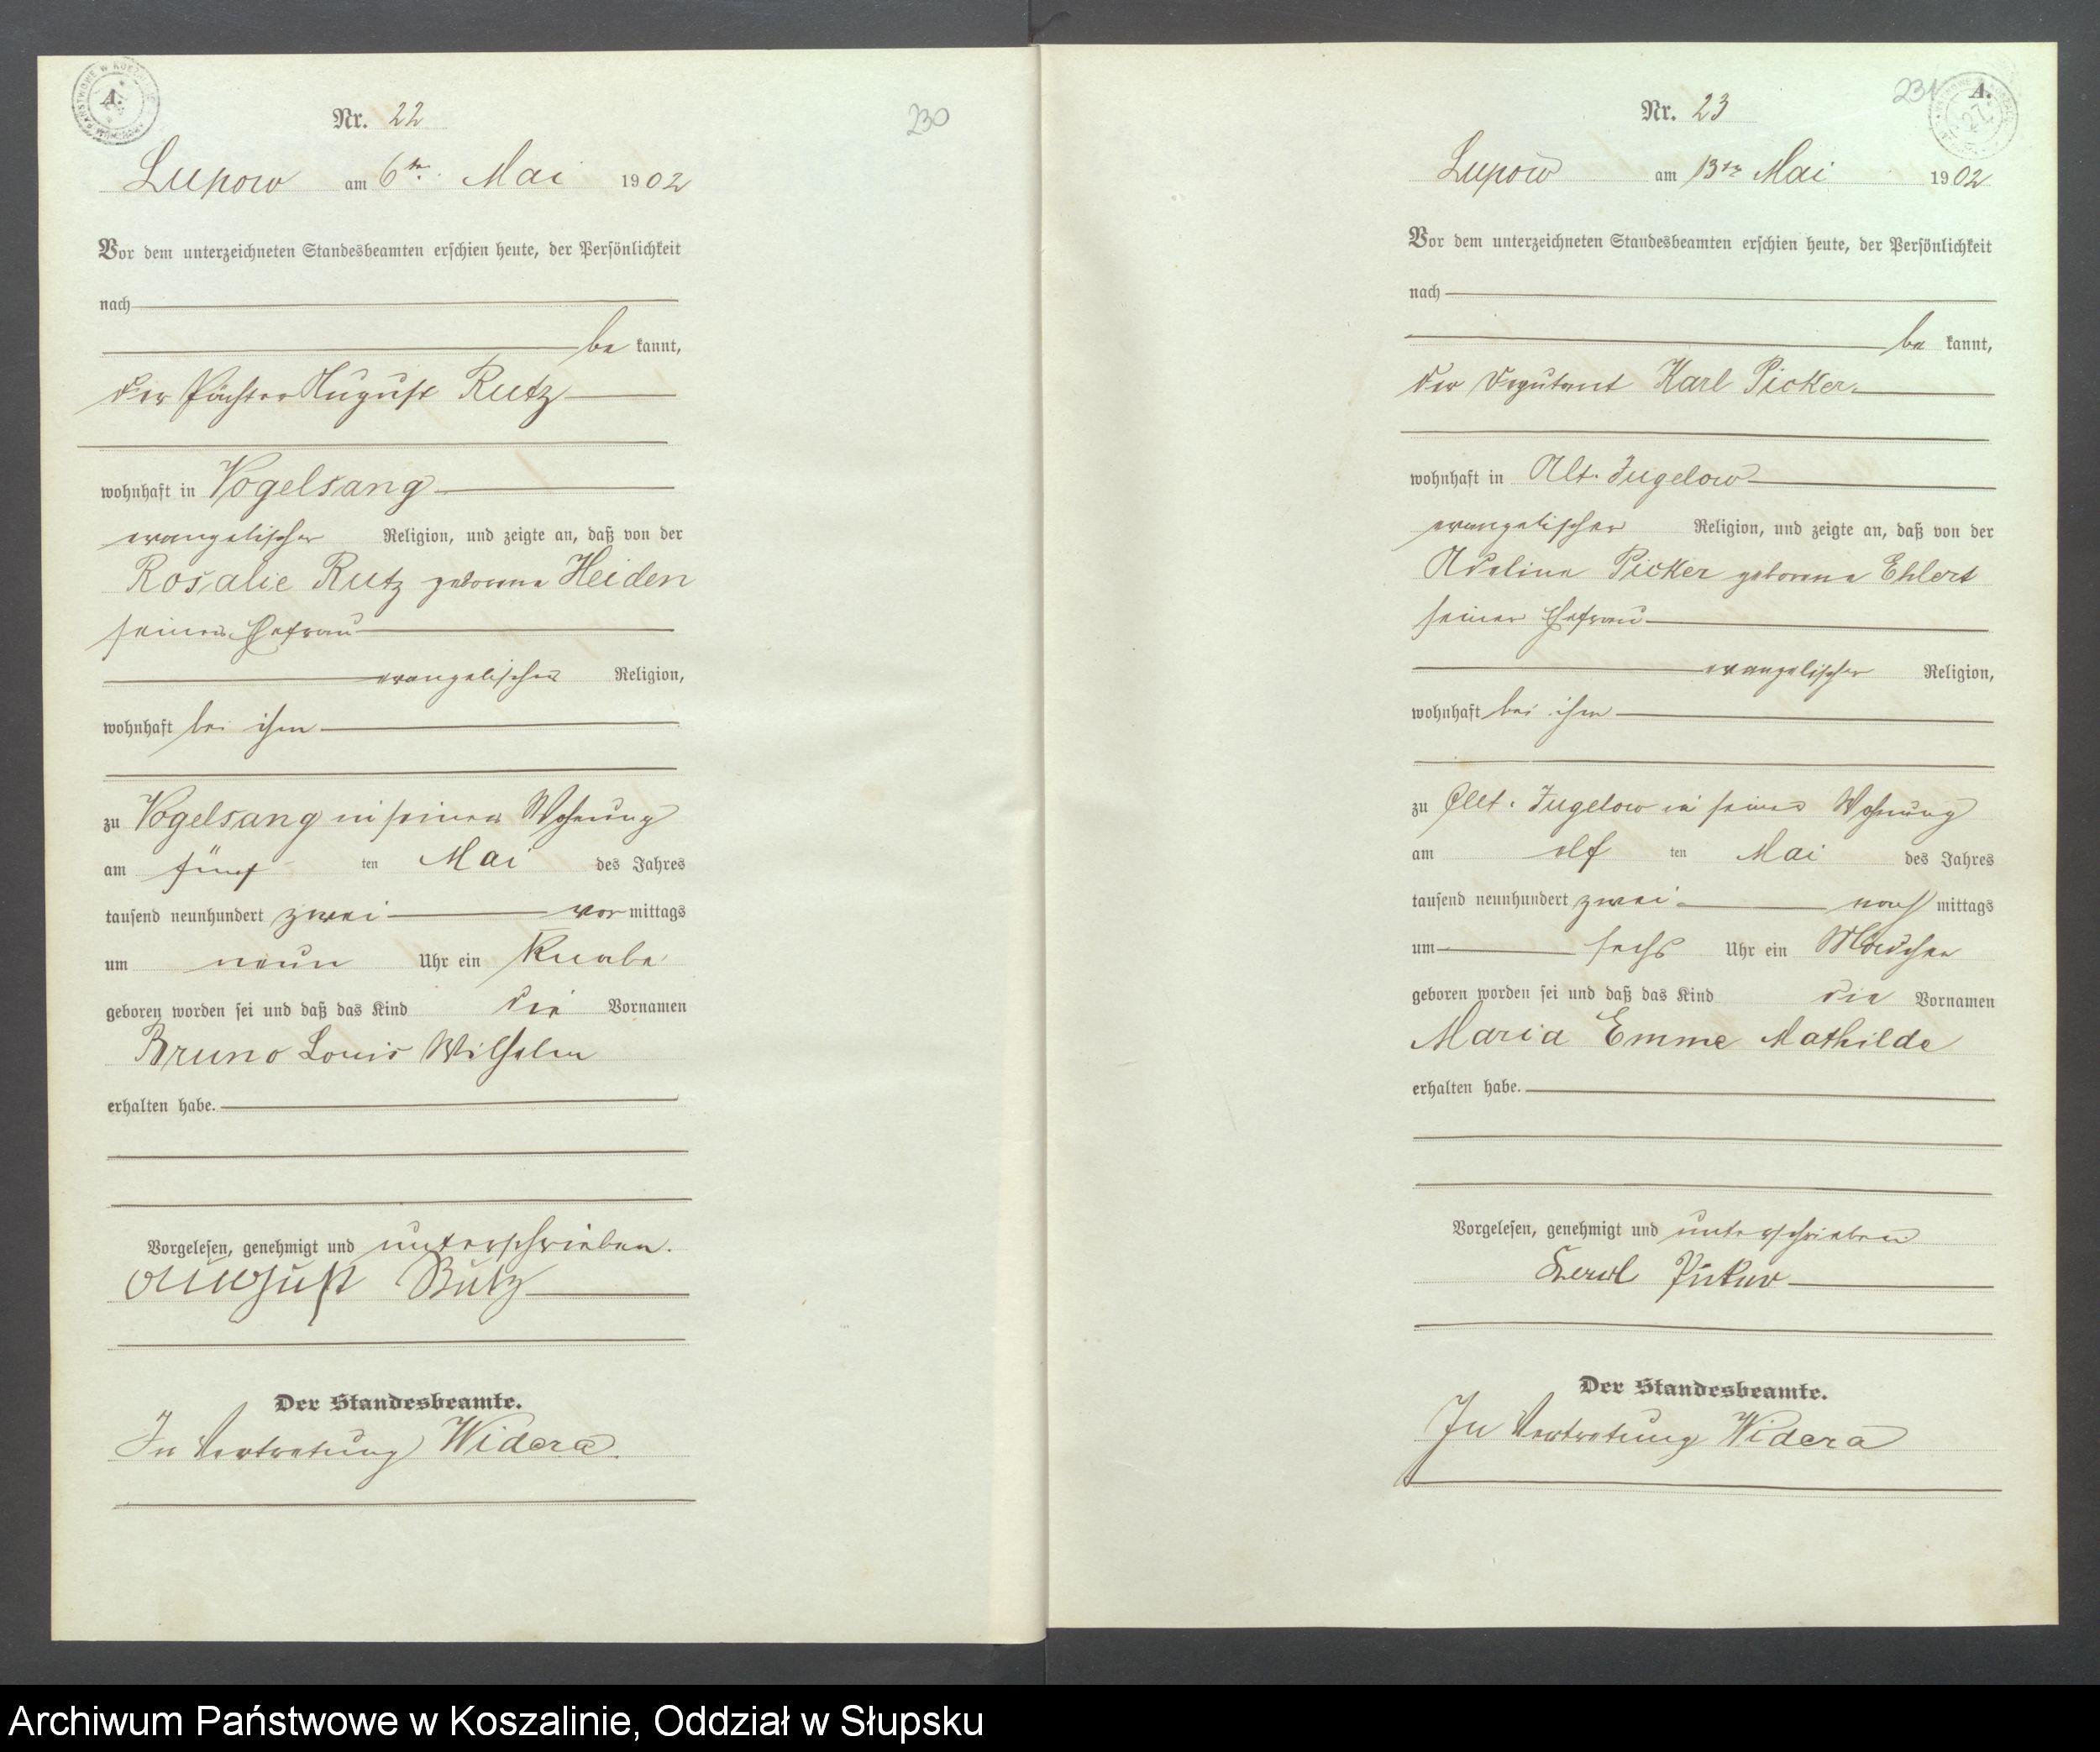 A.
Nr. 22
230
Lupow am 6ten Mai 1902
Vor dem unterzeichneten Standesbeamten erschien heute, der Persönlichkeit
nach
be kannt,
der Pächter August Rutz
wohnhaft in Vogelsang
evangelischer Religion, und zeigte an, daß von der
Rosalie Rutz geborene Heiden
seiner Ehefrau
evangelischer Religion,
wohnhaft bei ihm
zu Vogelsang in seiner Wohnung
am fünf ten Mai des Jahres
tausend neunhundert zwei vor mittags
um neun Uhr ein Knabe
geboren worden sei und daß das Kind die Vornamen
Bruno Louis Wilhelm
erhalten habe.
Vorgelesen, genehmigt und unterschrieben.
August Rutz
Der Standesbeamte.
In Vertretung Widera.
231
A.
Nr. 23
Lupow am 13ten Mai 1902
Vor dem unterzeichneten Standesbeamten erschien heute, der Persönlichkeit
nach
be kannt,
der Deputant Karl Picker
wohnhaft in Alt-Jugelow
evangelischer Religion, und zeigte an, daß von der
Adeline Picker geborene Ehlert
seiner Ehefrau
evangelischer Religion,
wohnhaft bei ihm
zu Alt-Jugelow in seiner Wohnung
am elf ten Mai des Jahres
tausend neunhundert zwei nach mittags
um sechs Uhr ein Mädchen
geboren worden sei und daß das Kind die Vornamen
Maria Emme Mathilde
erhalten habe.
Vorgelesen, genehmigt und unterschrieben
Karl Picker
Der Standesbeamte.
In Vertretung Widera
Archiwum Państwowe w Koszalinie, Oddział w Słupsku